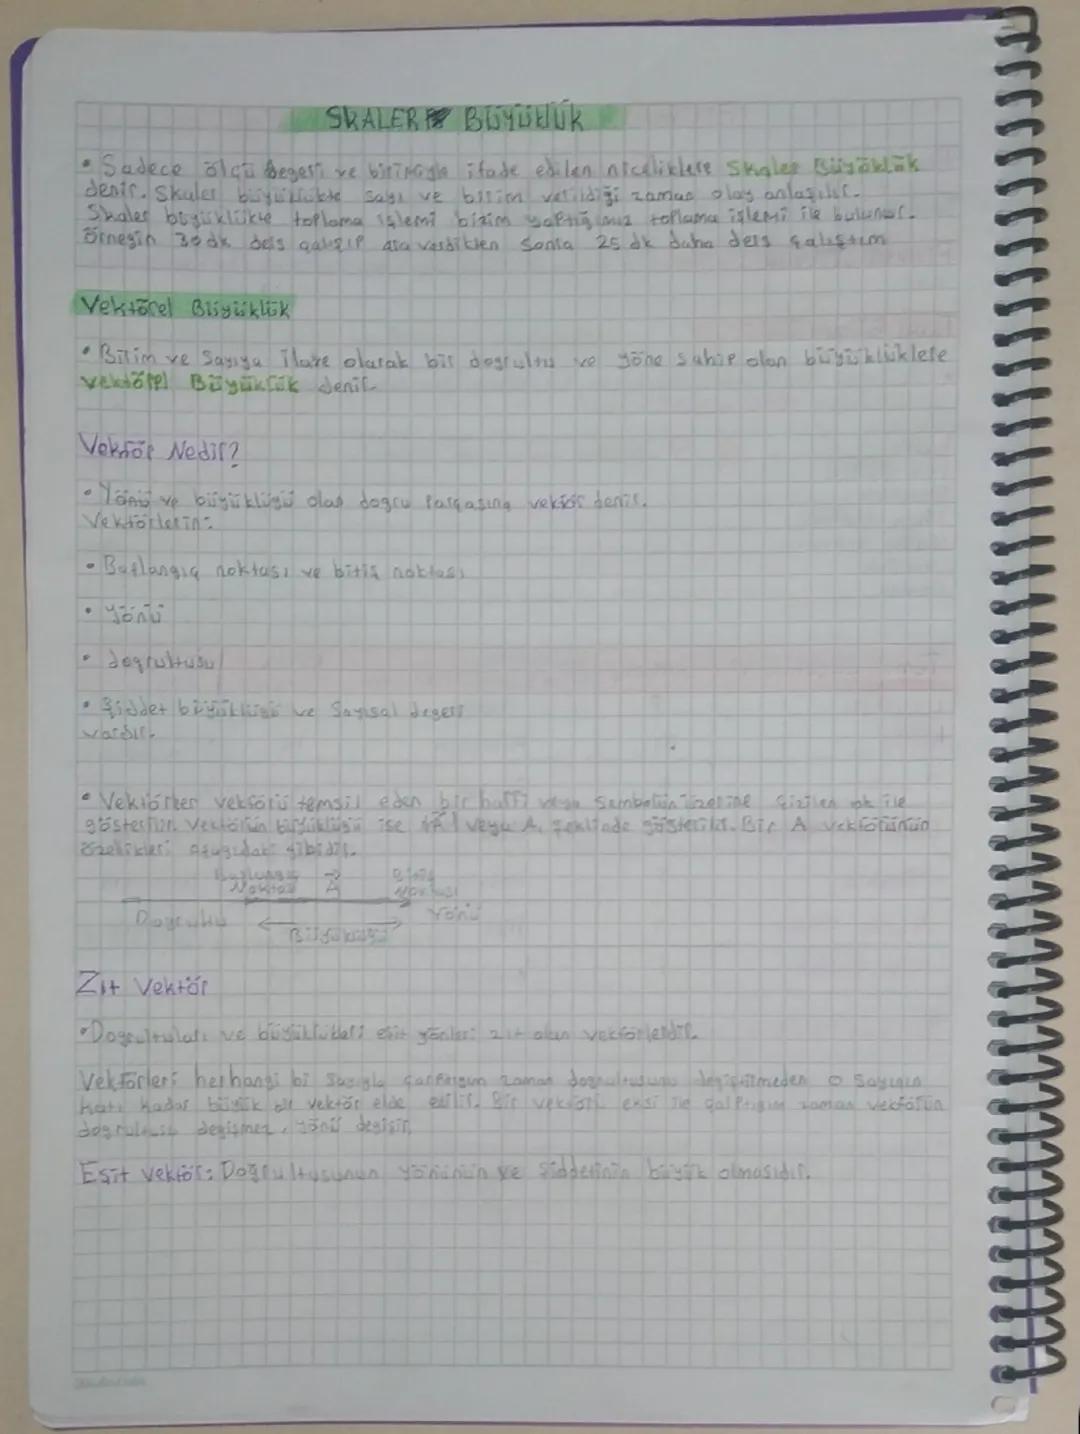 SKALER BÜYÜKLÜK
• Sadece ölçü değeri ve birimiyle ifade edilen niceliklere Skaler Büyüklük
denir. Skaler büyüklükte sayı ve birim verildiği zaman olay anlaşılır.
Skaler büyüklükte toplama işlemi bizim yaptığımız toplama işlemi ile bulunur.
Örneğin 30 dk ders çalışıp ara verdikten sonra 25 dk daha ders çalıştım
Vektörel Büyüklük
• Birim ve sayıya ilave olarak bir doğrultu ve yöne sahip olan büyüklüklere
Vektörel Büyüklük denir.
Vektör Nedir?
• Yönü ve büyüklüğü olan doğru parçasına vektör denir.
Vektörlerin:
• Başlangıç noktası ve bitiş noktası
• Yönü
• doğrultusu
• Şiddet büyüklüğü ve Sayısal değeri
vardır.
• Vektörler vektörü temsil eden bir harfi veya sembolün üzerine çizilen ok ile
gösterilir. Vektörün büyüklüğü ise |A| veya A, şeklinde gösterilir. Bir A vektörünün
özellikleri aşağıdaki gibidir.
Başlangıç Noktası A Bitiş Noktası
Doğrultu Büyüklüğü Yönü
Zıt Vektör
• Doğrultuları ve büyüklükleri eşit yönleri zıt olan vektörlerdir.
Vektörleri herhangi bi sayıyla çarptığım zaman doğrultusunu değiştirmeden o sayının
katı kadar büyük bir vektör elde edilir. Bir vektörü eksi ile çarptığım zaman vektörün
doğrultusu değişmez, yönü değişir.
Eşit vektör: Doğrultusunun yönünün ve şiddetinin büyük olmasıdır.